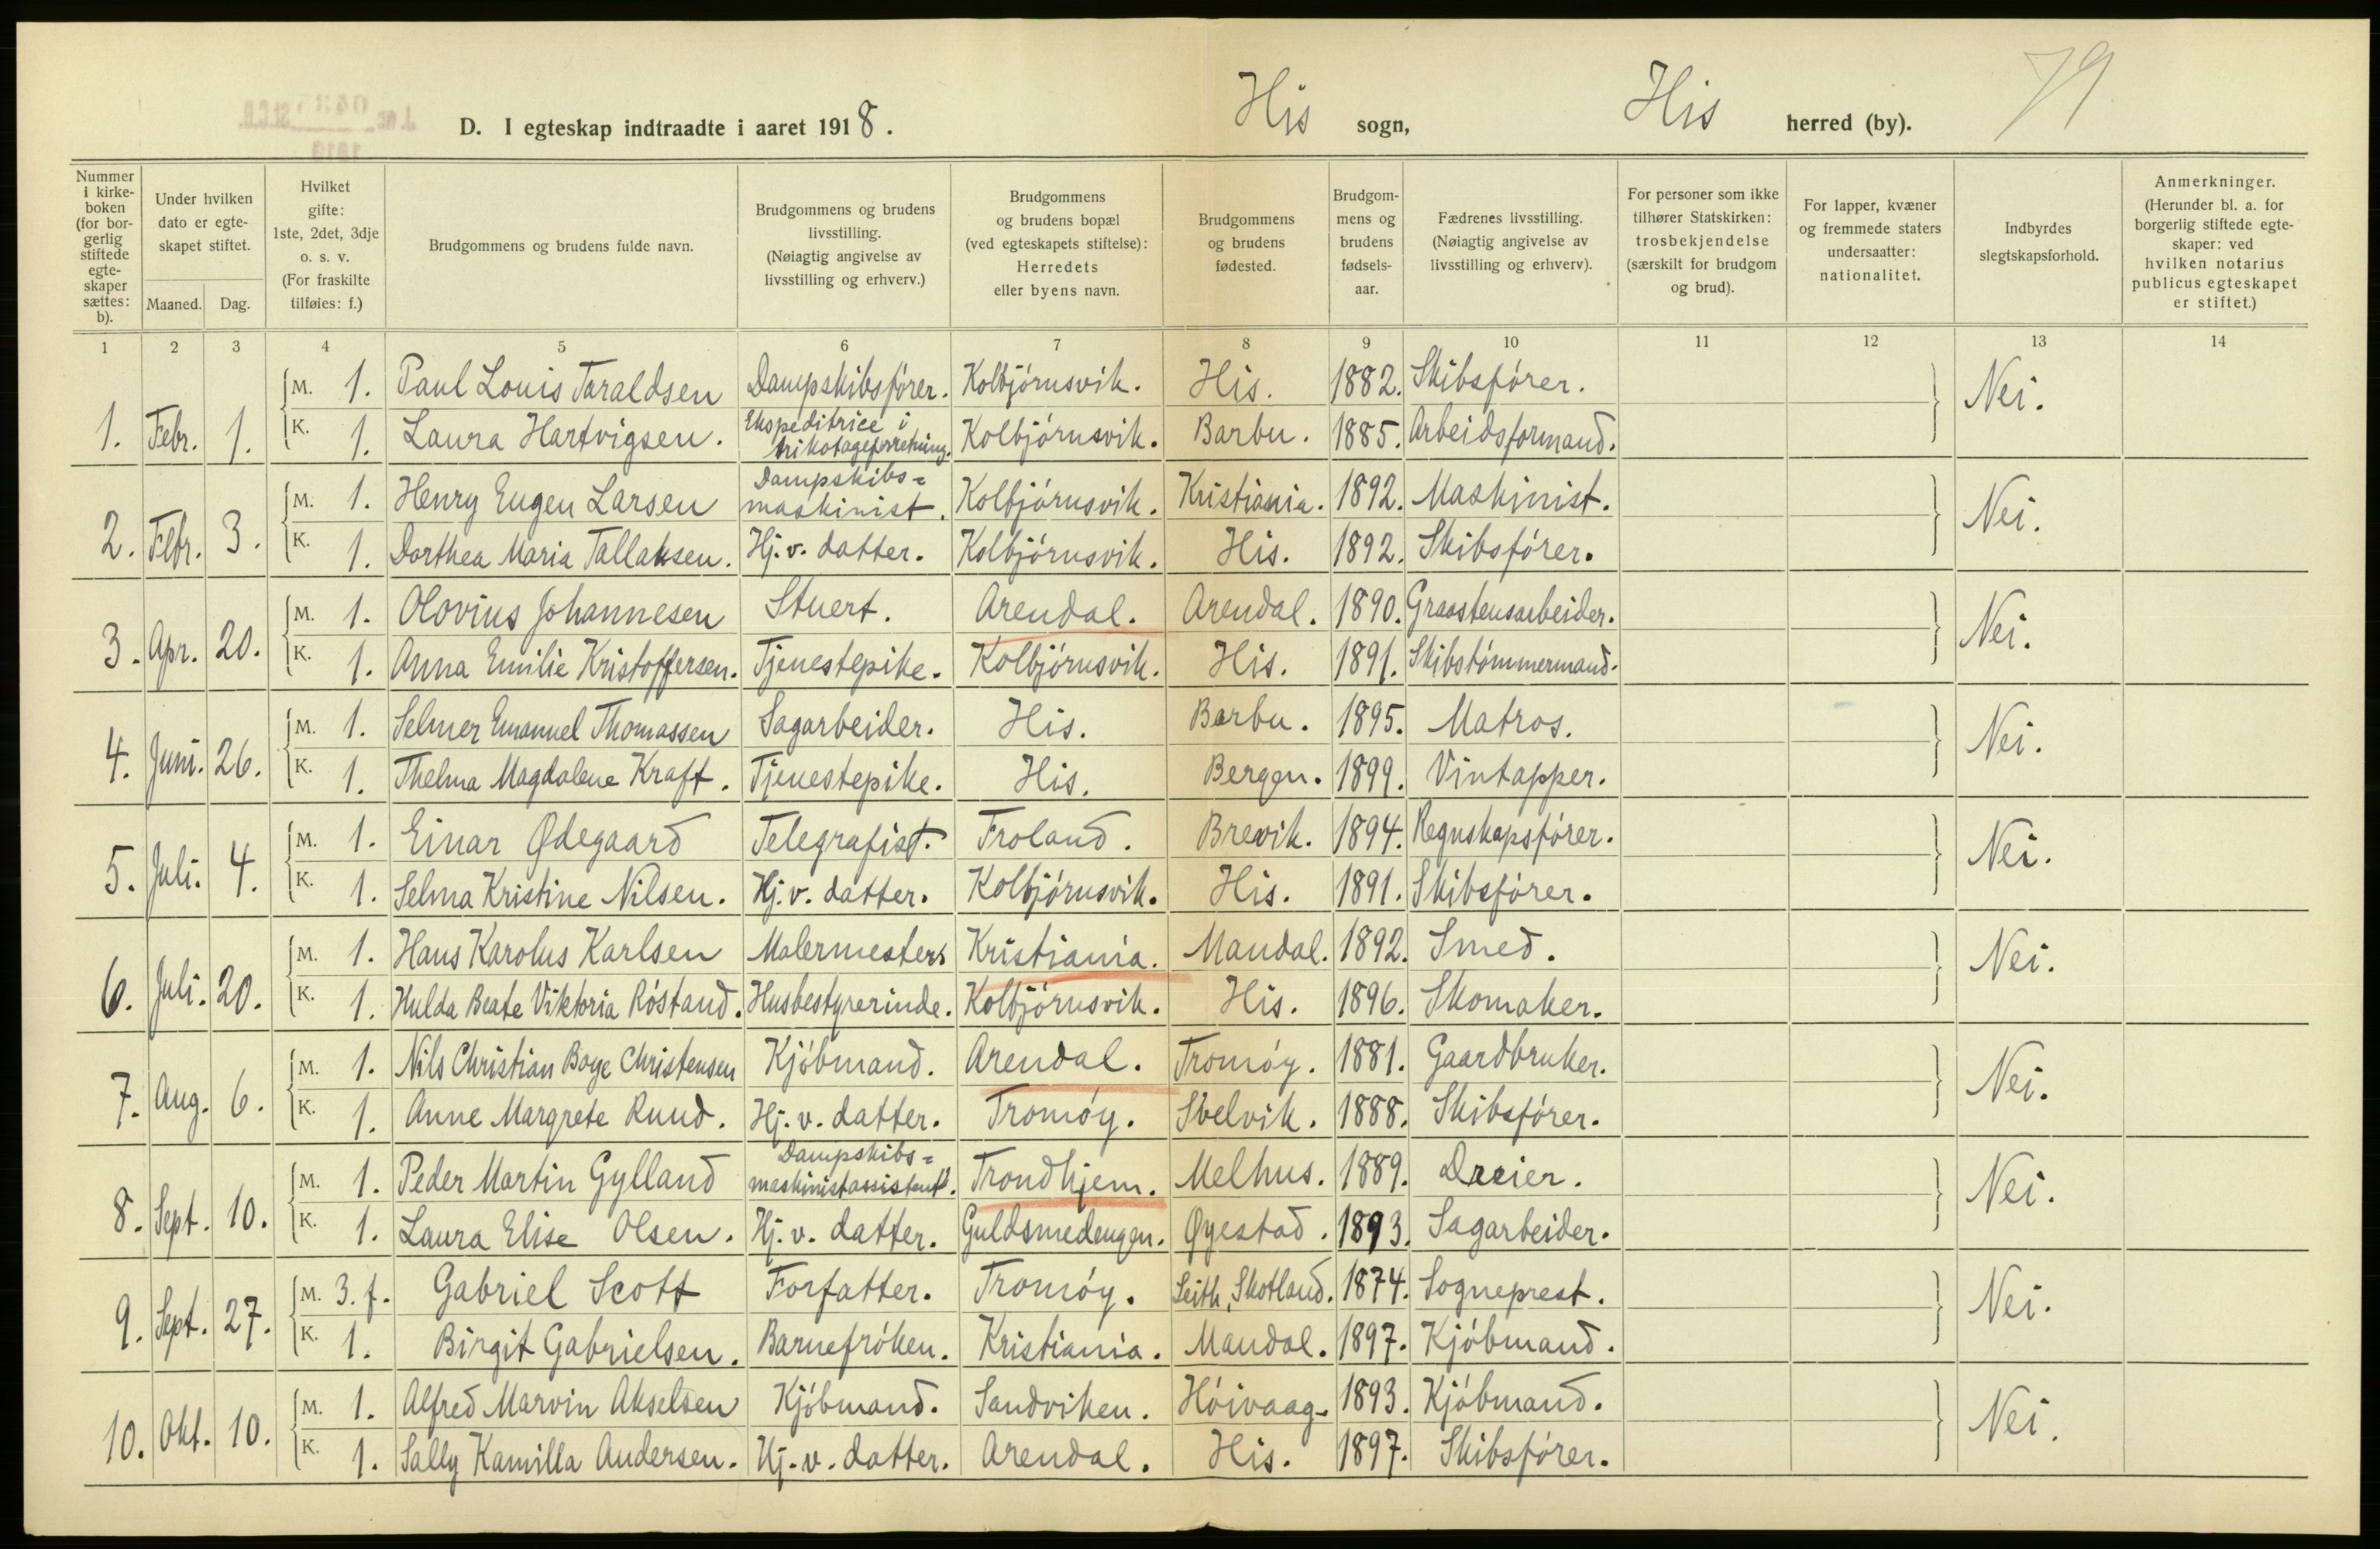 D. I egteskap indtraadte i aaret 1918. His sogn, His herred (by). 79
Nummer i kirke-boken (for bor-gerlig stiftede egte-skaper sættes: b).
Under hvilken dato er egte-skapet stiftet.
Maaned. Dag.
Hvilket gifte: 1ste, 2det, 3dje o. s. v. (For fraskilte tilføies: f.)
Brudgommens og brudens fulde navn.
Brudgommens og brudens livsstilling. (Nøiagtig angivelse av livsstilling og erhverv.)
Brudgommens og brudens bopæl (ved egteskapets stiftelse): Herredets eller byens navn.
Brudgommens og brudens fødested.
Brudgom-mens og brudens fødsels-aar.
Fædrenes livsstilling. (Nøiagtig angivelse av livsstilling og erhverv).
For personer som ikke tilhører Statskirken: trosbekjendelse (særskilt for brudgom og brud).
For lapper, kvæner og fremmede staters undersaatter: nationalitet.
Indbyrdes slegtskapsforhold.
Anmerkninger. (Herunder bl. a. for borgerlig stiftede egte-skaper: ved hvilken notarius publicus egteskapet er stiftet.)
1 2 3 4 5 6 7 8 9 10 11 12 13 14
M. 1. Paul Louis Taraldsen Dampskibsfører. Kolbjórnsvik. His. 1882. Skibsfórer.
1. Febr. 1. K. 1. Laura Hartvigsen. Ekspeditrice i trikotageforretning. Kolbjórnsvik. Barbu. 1885. Arbeidsformand. Nei.
M. 1. Henry Eugen Larsen Dampskibs=maskinist. Kolbjórnsvik. Kristiania. 1892. Maskinist.
2. Febr. 3. K. 1. Dorthea Maria Tallaksen. Hj. v. datter. Kolbjórnsvik. His. 1892. Skibsfórer. Nei.
M. 1. Olovius Johannesen Stuert. Arendal. Arendal. 1890. Graastensarbeider.
3. Apr. 20. K. 1. Anna Emilie Kristoffersen. Tjenestepike. Kolbjórnsvik. His. 1891. Skibstómmermand. Nei.
M. 1. Selmer Emanuel Thomassen Sagarbeider. His. Barbu. 1895. Matros.
4. Juni. 26. K. 1. Thelma Magdalene Kraft. Tjenestepike. His. Bergen. 1899. Vintapper. Nei.
M. 1. Einar Ødegaard Telegrafist. Froland. Brevik. 1894. Regnskapsfórer.
5. Juli. 4. K. 1. Selma Kristine Nilsen. Hj. v. datter. Kolbjórnsvik. His. 1891. Skibsfórer. Nei.
M. 1. Hans Karolus Karlsen Malermester Kristiania. Mandal. 1892. Smed.
6. Juli. 20. K. 1. Hulda Beate Viktoria Róstand. Husbestyrerinde. Kolbjórnsvik. His. 1896. Skomaker. Nei.
M. 1. Nils Christian Boye Christensen Kjóbmand. Arendal. Tromóy. 1881. Gaardbruker.
7. Aug. 6. K. 1. Anne Margrete Ruud. Hj. v. datter. Tromóy. Svelvik. 1888. Skibsfórer. Nei.
M. 1. Peder Martin Gylland Dampskibs=maskinistassistent. Trondhjem. Melhus. 1889. Dreier.
8. Sept. 10. K. 1. Laura Elise Olsen. Hj. v. datter. Guldsmedengen. Øyestad. 1893. Sagarbeider. Nei.
M. 3. f. Gabriel Scott Forfatter. Tromóy. Leith, Skotland. 1874. Sogneprest.
9. Sept. 27. K. 1. Birgit Gabrielsen. Barnefróken. Kristiania. Mandal. 1897. Kjóbmand. Nei.
M. 1. Alfred Marvin Akselsen Kjóbmand. Sandviken. Hóivaag. 1893. Kjóbmand.
10. Okt. 10. K. 1. Sally Kamilla Andersen. Hj. v. datter. Arendal. His. 1897. Skibsfórer. Nei.